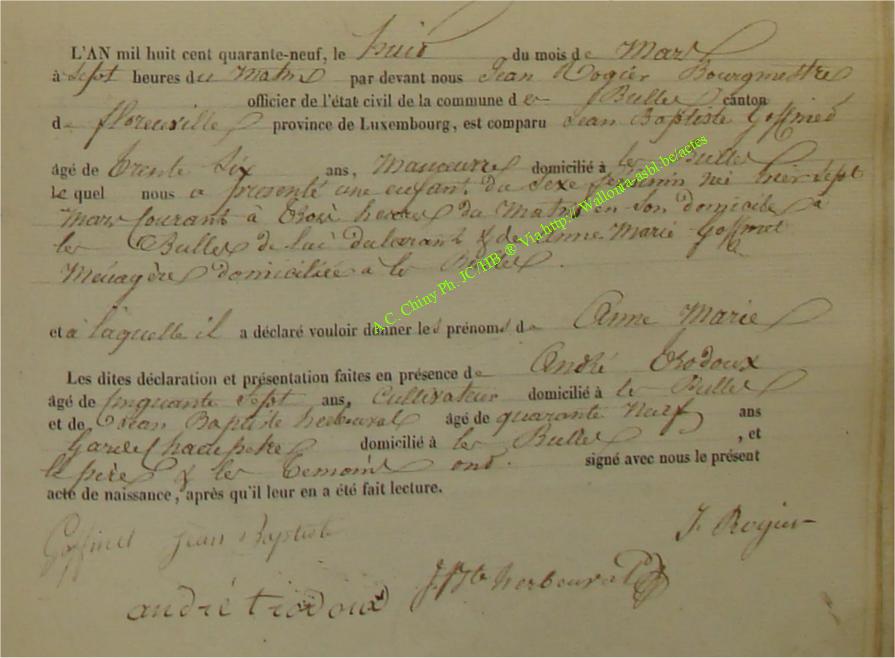 L'AN mil huit cent quarante-neuf, le huit du mois de Mars
à Sept heures du Matin par devant nous Jean Rogier Bourgmestre
officier de l'état civil de la commune de les Bulles canton
de florenville province de Luxembourg, est comparu Jean Baptiste Goffinet
âgé de trente Six ans, Manoeuvre domicilié à les Bulles
le quel nous a présenté une enfant du Sexe feminin né hier Sept
Mars Courant à trois heures du Matin en son domicile à
les Bulles de lui dularant & de Anne Marie Goffinet
Ménagère domiciliée à les Bulles.
et à laquelle il a déclaré vouloir donner les prénoms de Anne Marie
Les dites déclaration et présentation faites en présence de André Trodoux
âgé de Cinquante Sept ans, Cultivateur domicilié à les Bulles
et de Jean Baptiste herbeuval âgé de quarante Neuf ans
Garde Champetre domicilié à les Bulles , et
le père & les temoins ont. signé avec nous le présent
acte de naissance, après qu'il leur en a été fait lecture.
Goffinet Jean Baptiste J. Rogier
andré trodoux J. Bte herbeuval
A.C. Chiny Ph. JC/HB ® Via http://Wallonia-asbl.be/actes